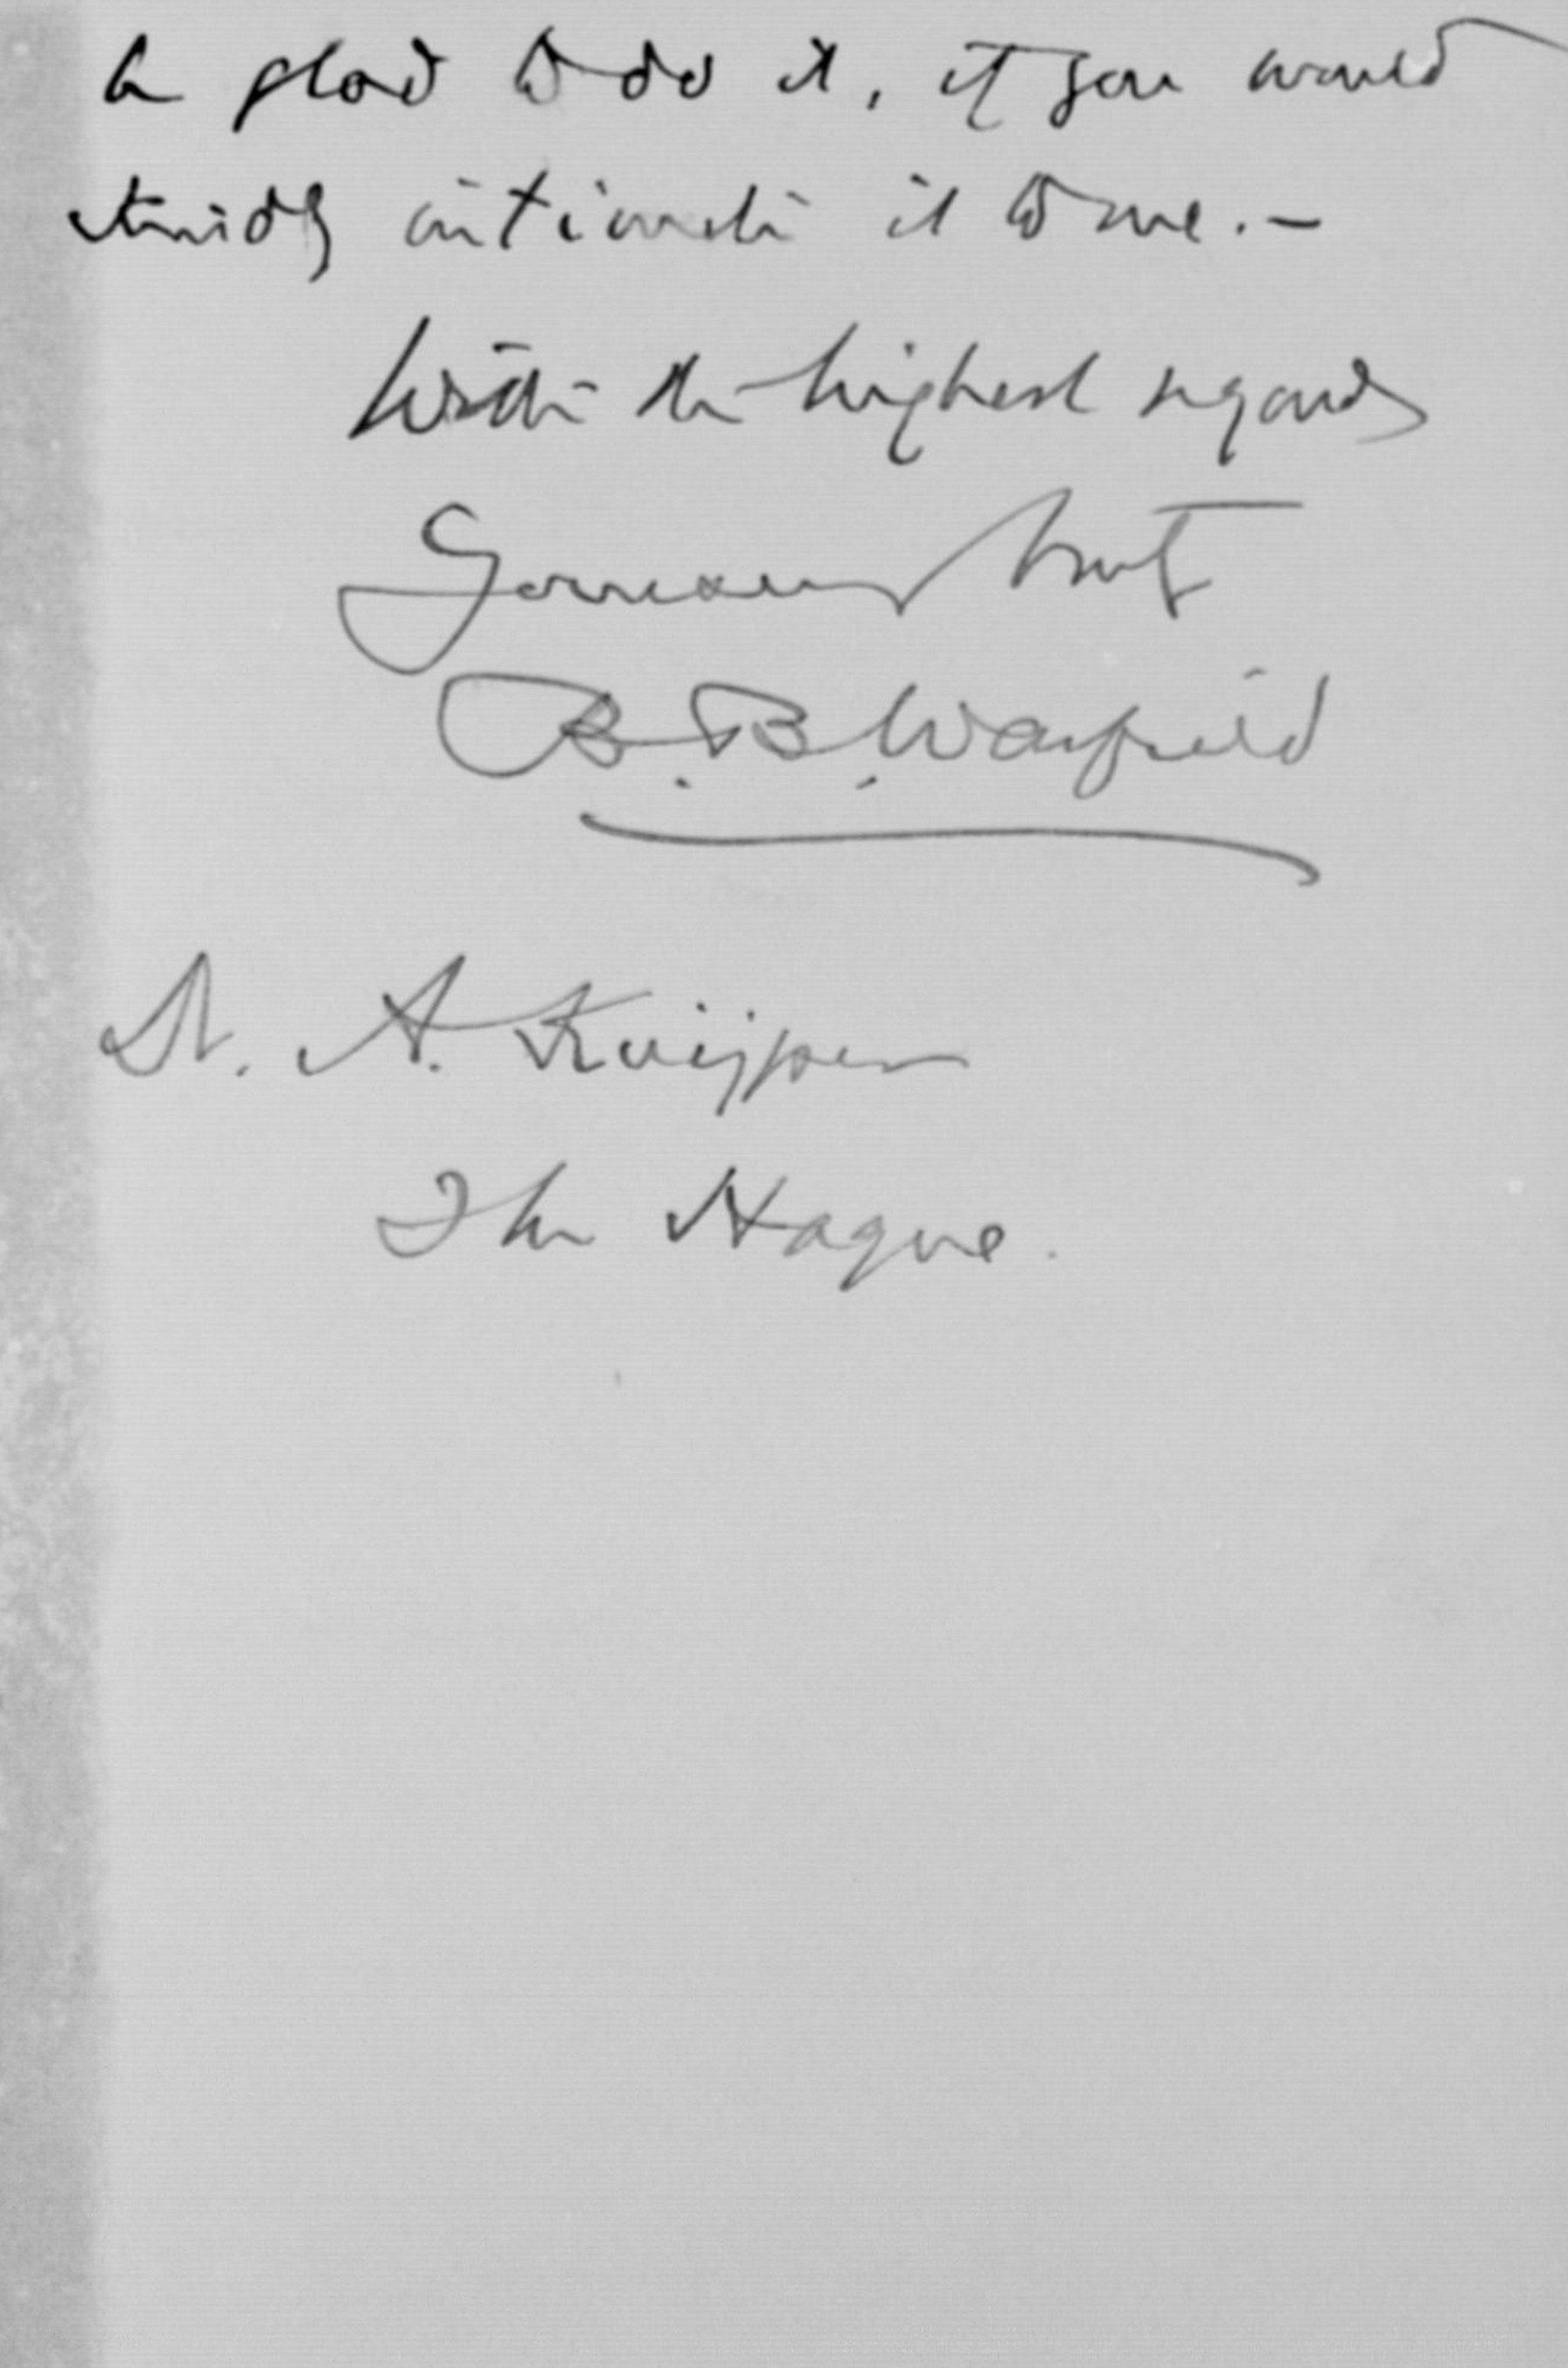 be glad to do it, if you would
kindly intimate it to me. —
With the highest regards
Yours very truly
B. B. Warfield
Dr. A. Kuijper
The Hague.